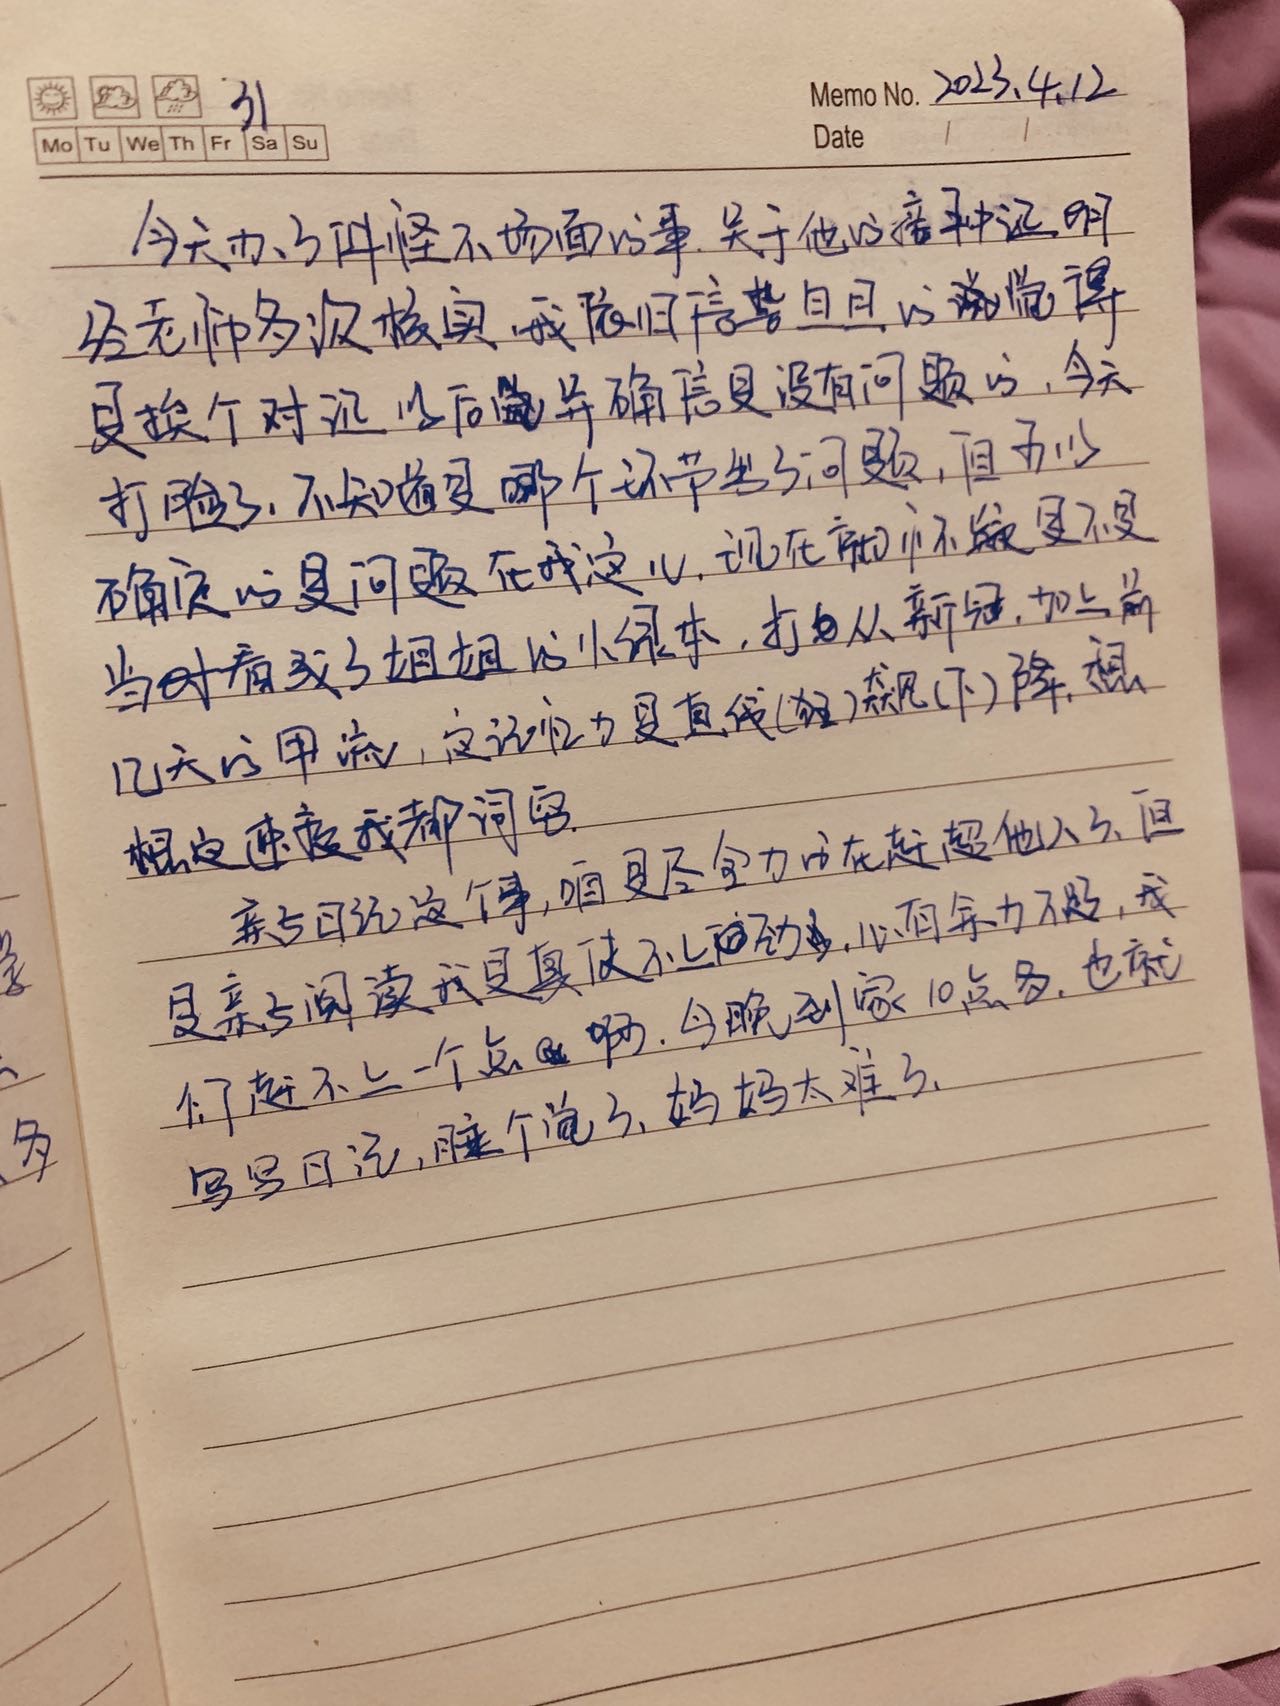 31
Mo Tu We Th Fr Sa Su
Memo No. 2023.4.12
Date / /
今天办了件怪不场面的事.关于他的接种证明
经老师多次核实,我依旧信誓旦旦的觉得
是挨个对证以后并确信是没有问题的,今天
打脸了,不知道是哪个环节出了问题,但可以
确定的是问题在我这儿,现在就怀疑是不是
当时看成了姐姐的小绿本,打自从新冠,加上前
几天的甲流,这记忆力是直线(狂)飙(下)降,想
想这速度我都词穷.
亲子日记这个事,咱是尽全力的在赶超他人了,但
是亲子阅读我是真使不上劲,心有余力不足,我
们赶不上一个点啊.今晚到家10点多,也就
写写日记,睡个觉了,妈妈太难了.
学
多